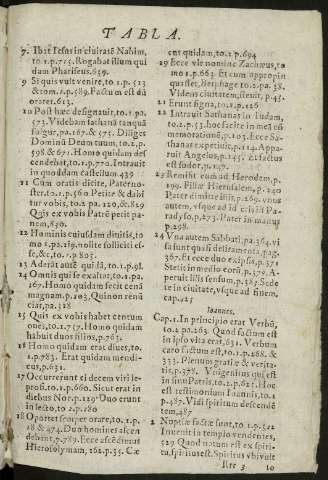 TABLA.
7. Ibat Iesus in ciuitatē Nahim,
to.2.p.715. Rogabat illum qui
dam Phariseus.659.
9 Si quis vult venire, to.1.p.513
& tom.2.p.589. Factum est dū
oraret.613.
10 Post hæc designauit, to.1.pa
573. Videbam sathanā tanquā
fulgur, pa.167.& 575. Diliges
Dominū Deum tuum, to.2.p.
598 & 671. Homo quidam des
cendebat, to.1.p.770. Intrauit
in quoddam castellum.439
11 Cum oratis dicite, Pater no-
ster. to.1.p.560 Petite & dabi
tur vobis, to.2.pa.120, & 829
Quis ex vobis Patrē petit pa
nem, 830.
12 Hominis cuiusdam diuitis, to
mo 1.pa.219. nolite solliciti es-
se, &c. to.1.p.803.
13 Aderāt autē quidā, to.1.p.91.
14 Omnis qui se exaltat, to.1.pa.
167. Homo quidam fecit cenā
magnam.p.203. Qui non renū
ciat, 328
15 Quis ex vobis habet centum
oues, to.2.757. Homo quidam
habuit duos filios, p.763.
16 Homo quidam erat diues, to.
1.p.783. Erat quidam mendi-
cus, p.631.
17 Occurrerunt ei decem viri le-
prosi. to.1.p.660. Sicut erat in
diebus Noe.p.129. Duo erunt
in lecto, to.2.p.180
18 Oportet semper orare, to.1.p.
18 & 474. Duo homines ascen
debant, p.789. Ecce ascēdimus
Hierosolymam, 162.p.35. Cæ
cus quidam, to.1.p.694
19 Ecce vir nomine Zachæus, to
mo 1.p.663. Et cum appropin
quasset, Betphage to.2.pa.38.
Videns ciuitatem, fleuit, p.43
21 Erunt signa, to.1.p.126
22 Intrauit Sathanas in Iudam,
to.2.p.53. hoc facite in meā cō
memorationē, p.103. Ecce Sa-
thanas expetiuit, p.114. Appa-
ruit Angelus, p.145. Et factus
est sudor, p.147.
23 Remisit eum ad Herodem, p.
199. Filiæ Hierusalem, p.240
Pater dimitte illis, p.269. vnus
Pater in manus
p.298.
24 Vna autem Sabbati, pa.364. vi
367. Et ecce duo ex ipsis, p.371
Stetit in medio eorū, p.379. A-
peruit illis sensum, p.387. Sede
te in ciuitate, vsque ad finem.
cap.425
Ioannes.
Cap.1. In principio erat Verbū,
to.2 pa.263. Quod factum est
in ipso vita erat, 631. Verbum
caro factum est, to.1.p.268. &
333. Plenum gratiæ & verita-
tis, p.337. Vnigenitus qui est
in sinu Patris, to.2.p.621. Hoc
est testimonium Ioannis, to.1
p.487. Vidi spiritum descendē
tem, 487
2 Nuptiæ factæ sunt, to.1.p.521
Inuenit in templo vendentes,
529 Quod natum est ex spiri-
tu, spiritus est. Spiritus vbi vult
Rrr 3 10